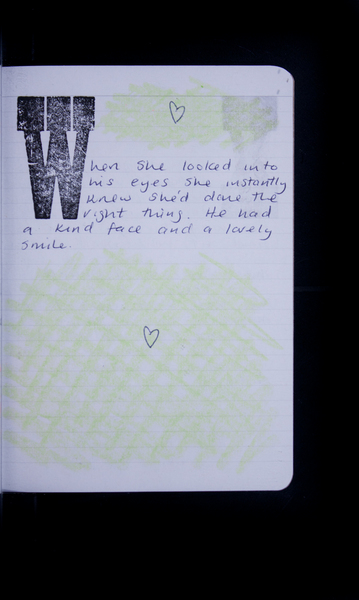 When she looked into
his eyes she instantly
knew she'd done the
right thing. He had
a kind face and a lovely
smile.